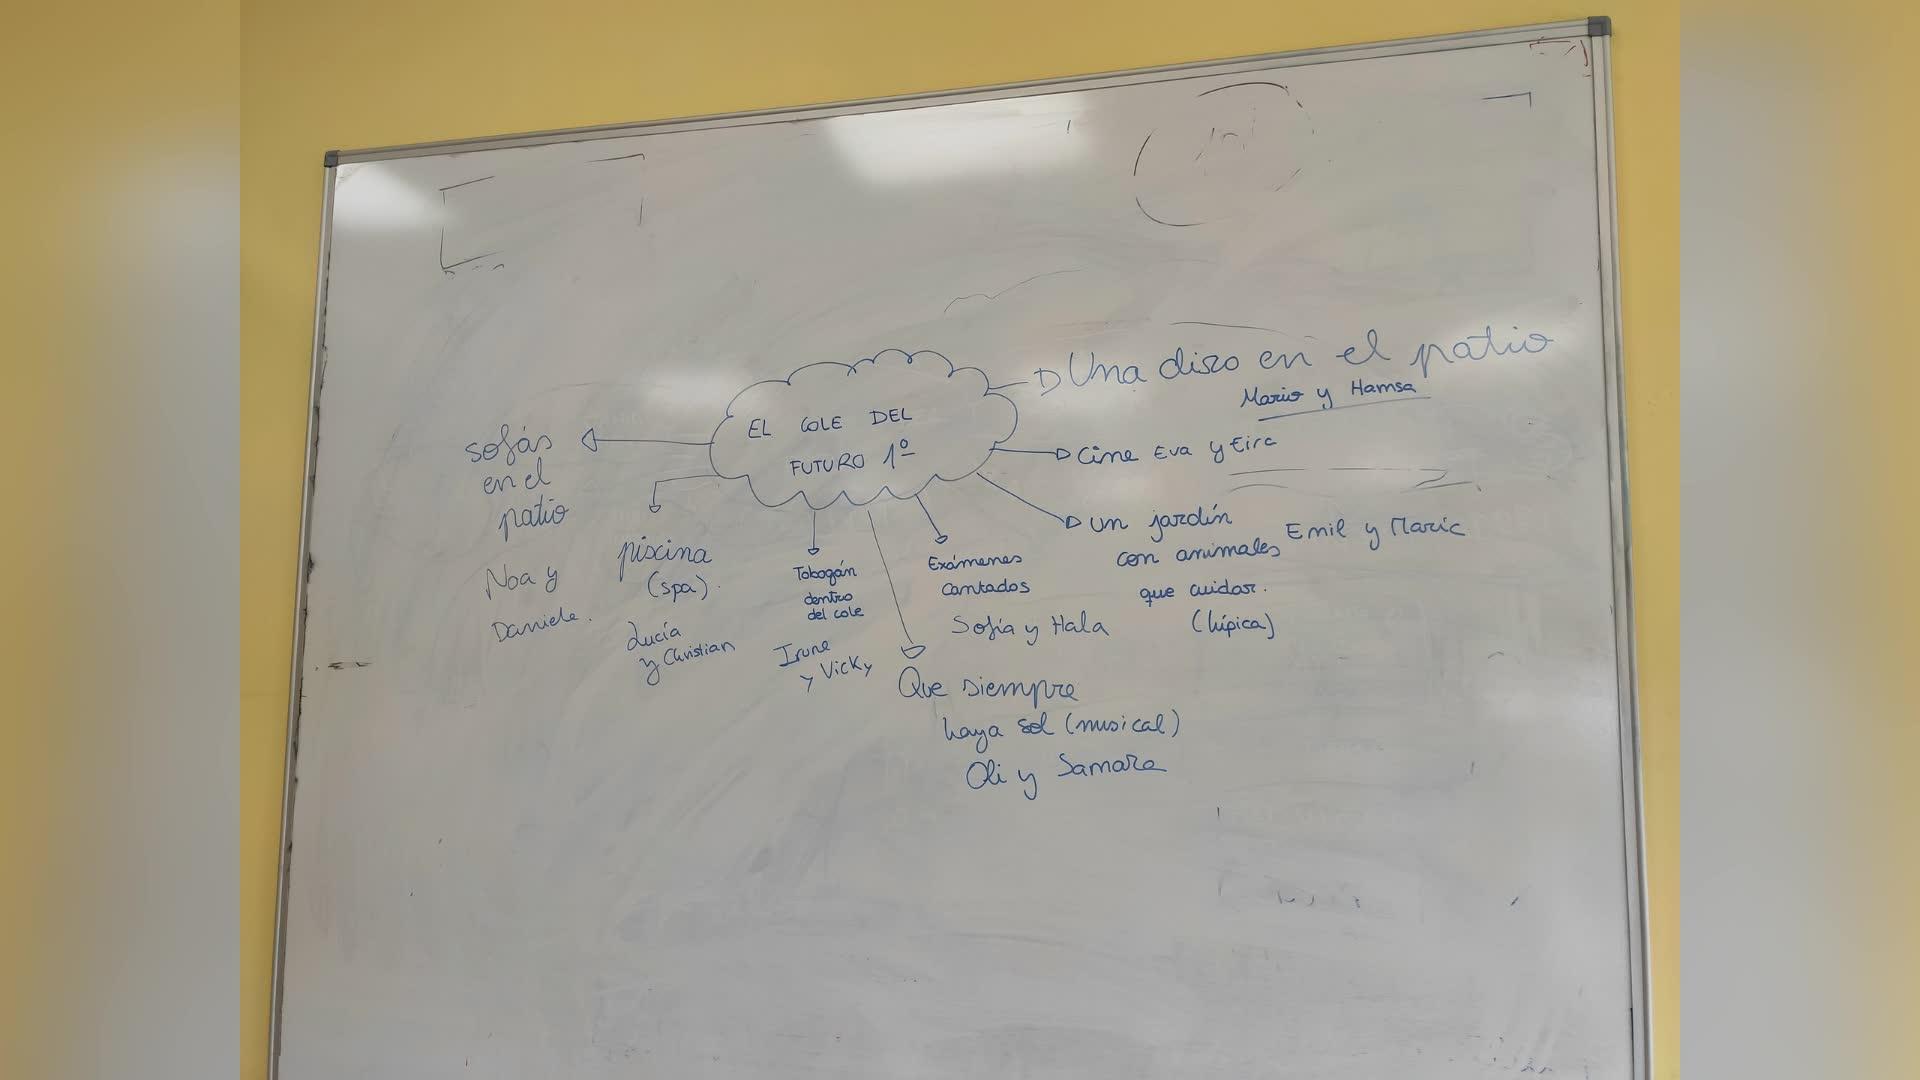 EL COLE DEL
FUTURO 1º
Una disco en el patio
Mario y Hamsa
Cine Eva y Eira
Un jardín
con animales
que cuidar.
(hípica)
Emil y María
Exámenes
cantados
Sofía y Hala
Que siempre
haya sol (musical)
Oli y Samara
Tobogán
dentro
del cole
Irune
y Vicky
piscina
(spa).
Lucía
y Christian
sofás
en el
patio
Noa y
Daniele.